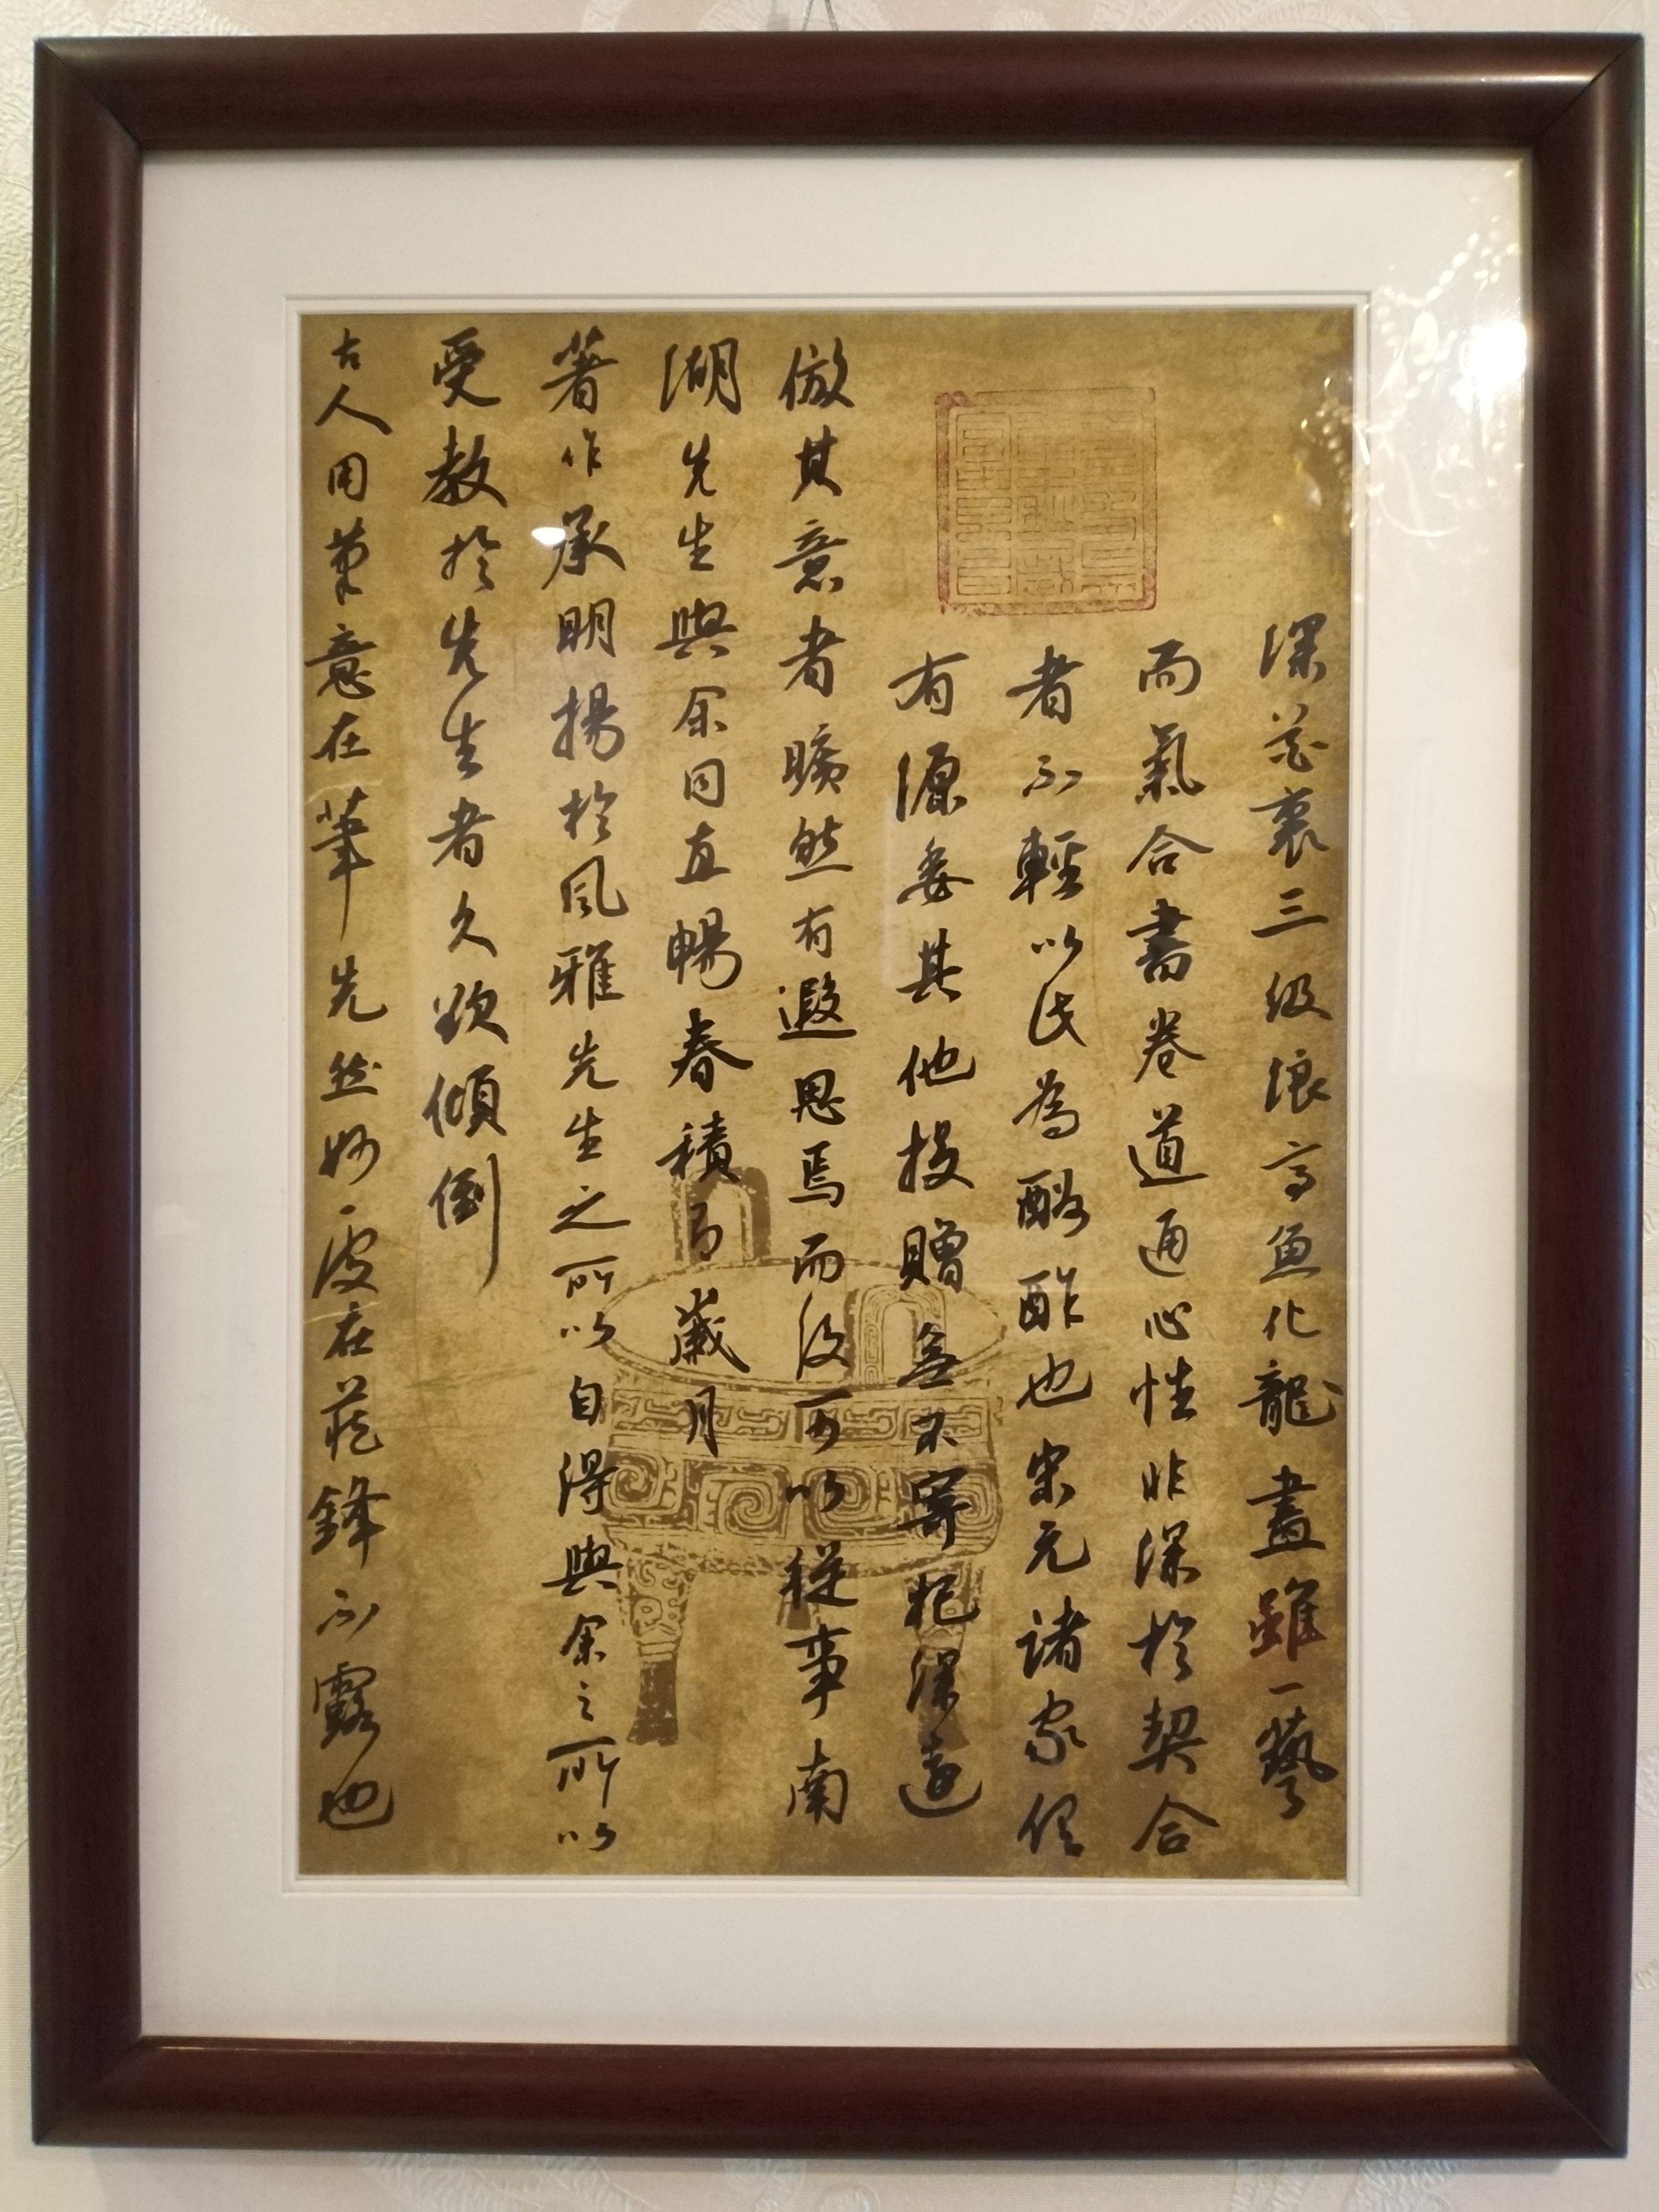 深花裏三級浪高魚化龍畫雖一藝
而氣合書卷道通心性非深於契合
者不輕以此為酬酢也宋元諸家俱
有源委其他投贈無不寄托深遠
倣其意者曠然有遐思焉而後可以從事南
湖先生與余同直暢春積有歲月
著作承明揚於風雅先生之所以自得與余之所以
受教於先生者久欲傾倒
古人用筆意在筆先然妙處在藏鋒不露也